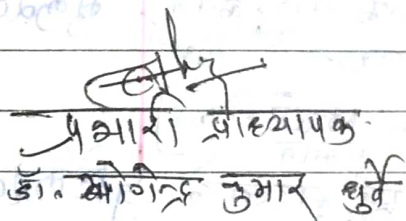 प्रभारी प्राध्यापक
डॉ. योगेन्द्र कुमार धुर्वे